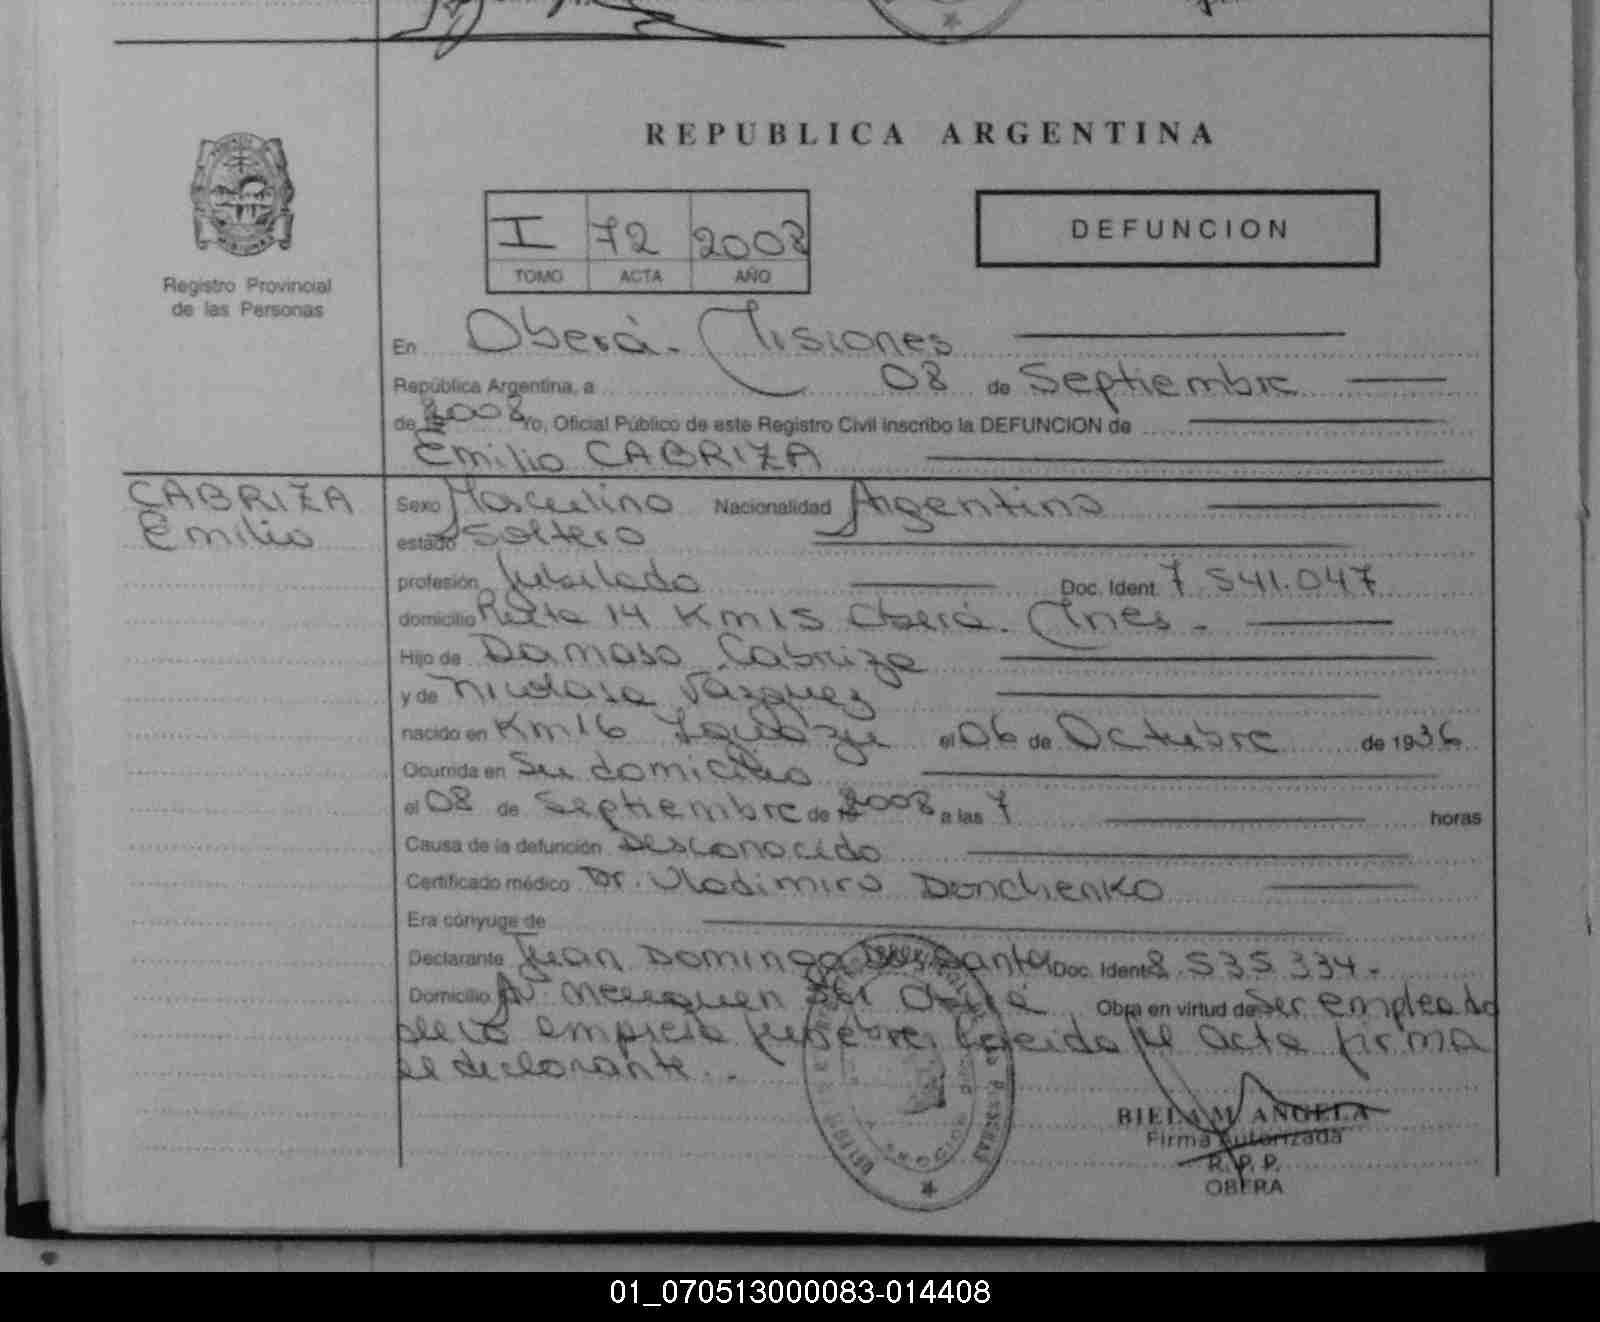 REPUBLICA ARGENTINA
Registro Provincial
de las Personas
I 72 2008
TOMO ACTA AÑO
DEFUNCION
En Oberá - Misiones
República Argentina, a 08 de Septiembre
de 2008 Yo, Oficial Público de este Registro Civil inscribo la DEFUNCION de
Emilio CABRIZA
CABRIZA
Emilio
Sexo Masculino Nacionalidad Argentina
estado Soltero
profesión Jubilado Doc. Ident. 7.541.047
domicilio Ruta 14 Km 15 Oberá - Mnes -
Hijo de Damaso Cabriza
y de Nicolasa Vazquez
nacido en Km 16 el 06 de Octubre de 1936
Ocurrida en Su domicilio
el 08 de Septiembre de 2008 a las 7 horas
Causa de la defunción Desconocido
Certificado médico Dr. Vladimiro Donchenko
Era cónyuge de
Declarante Juan Domingo Dos Santos Doc. Ident 8.535.334.-
Domicilio Av Neuquen Oberá Obra en virtud de Ser empleado
de la empresa funebre Leida el acta firma
el declarante.-
BIELA M. ANGELA
Firma Autorizada
R. P. P.
OBERA
01_070513000083-014408